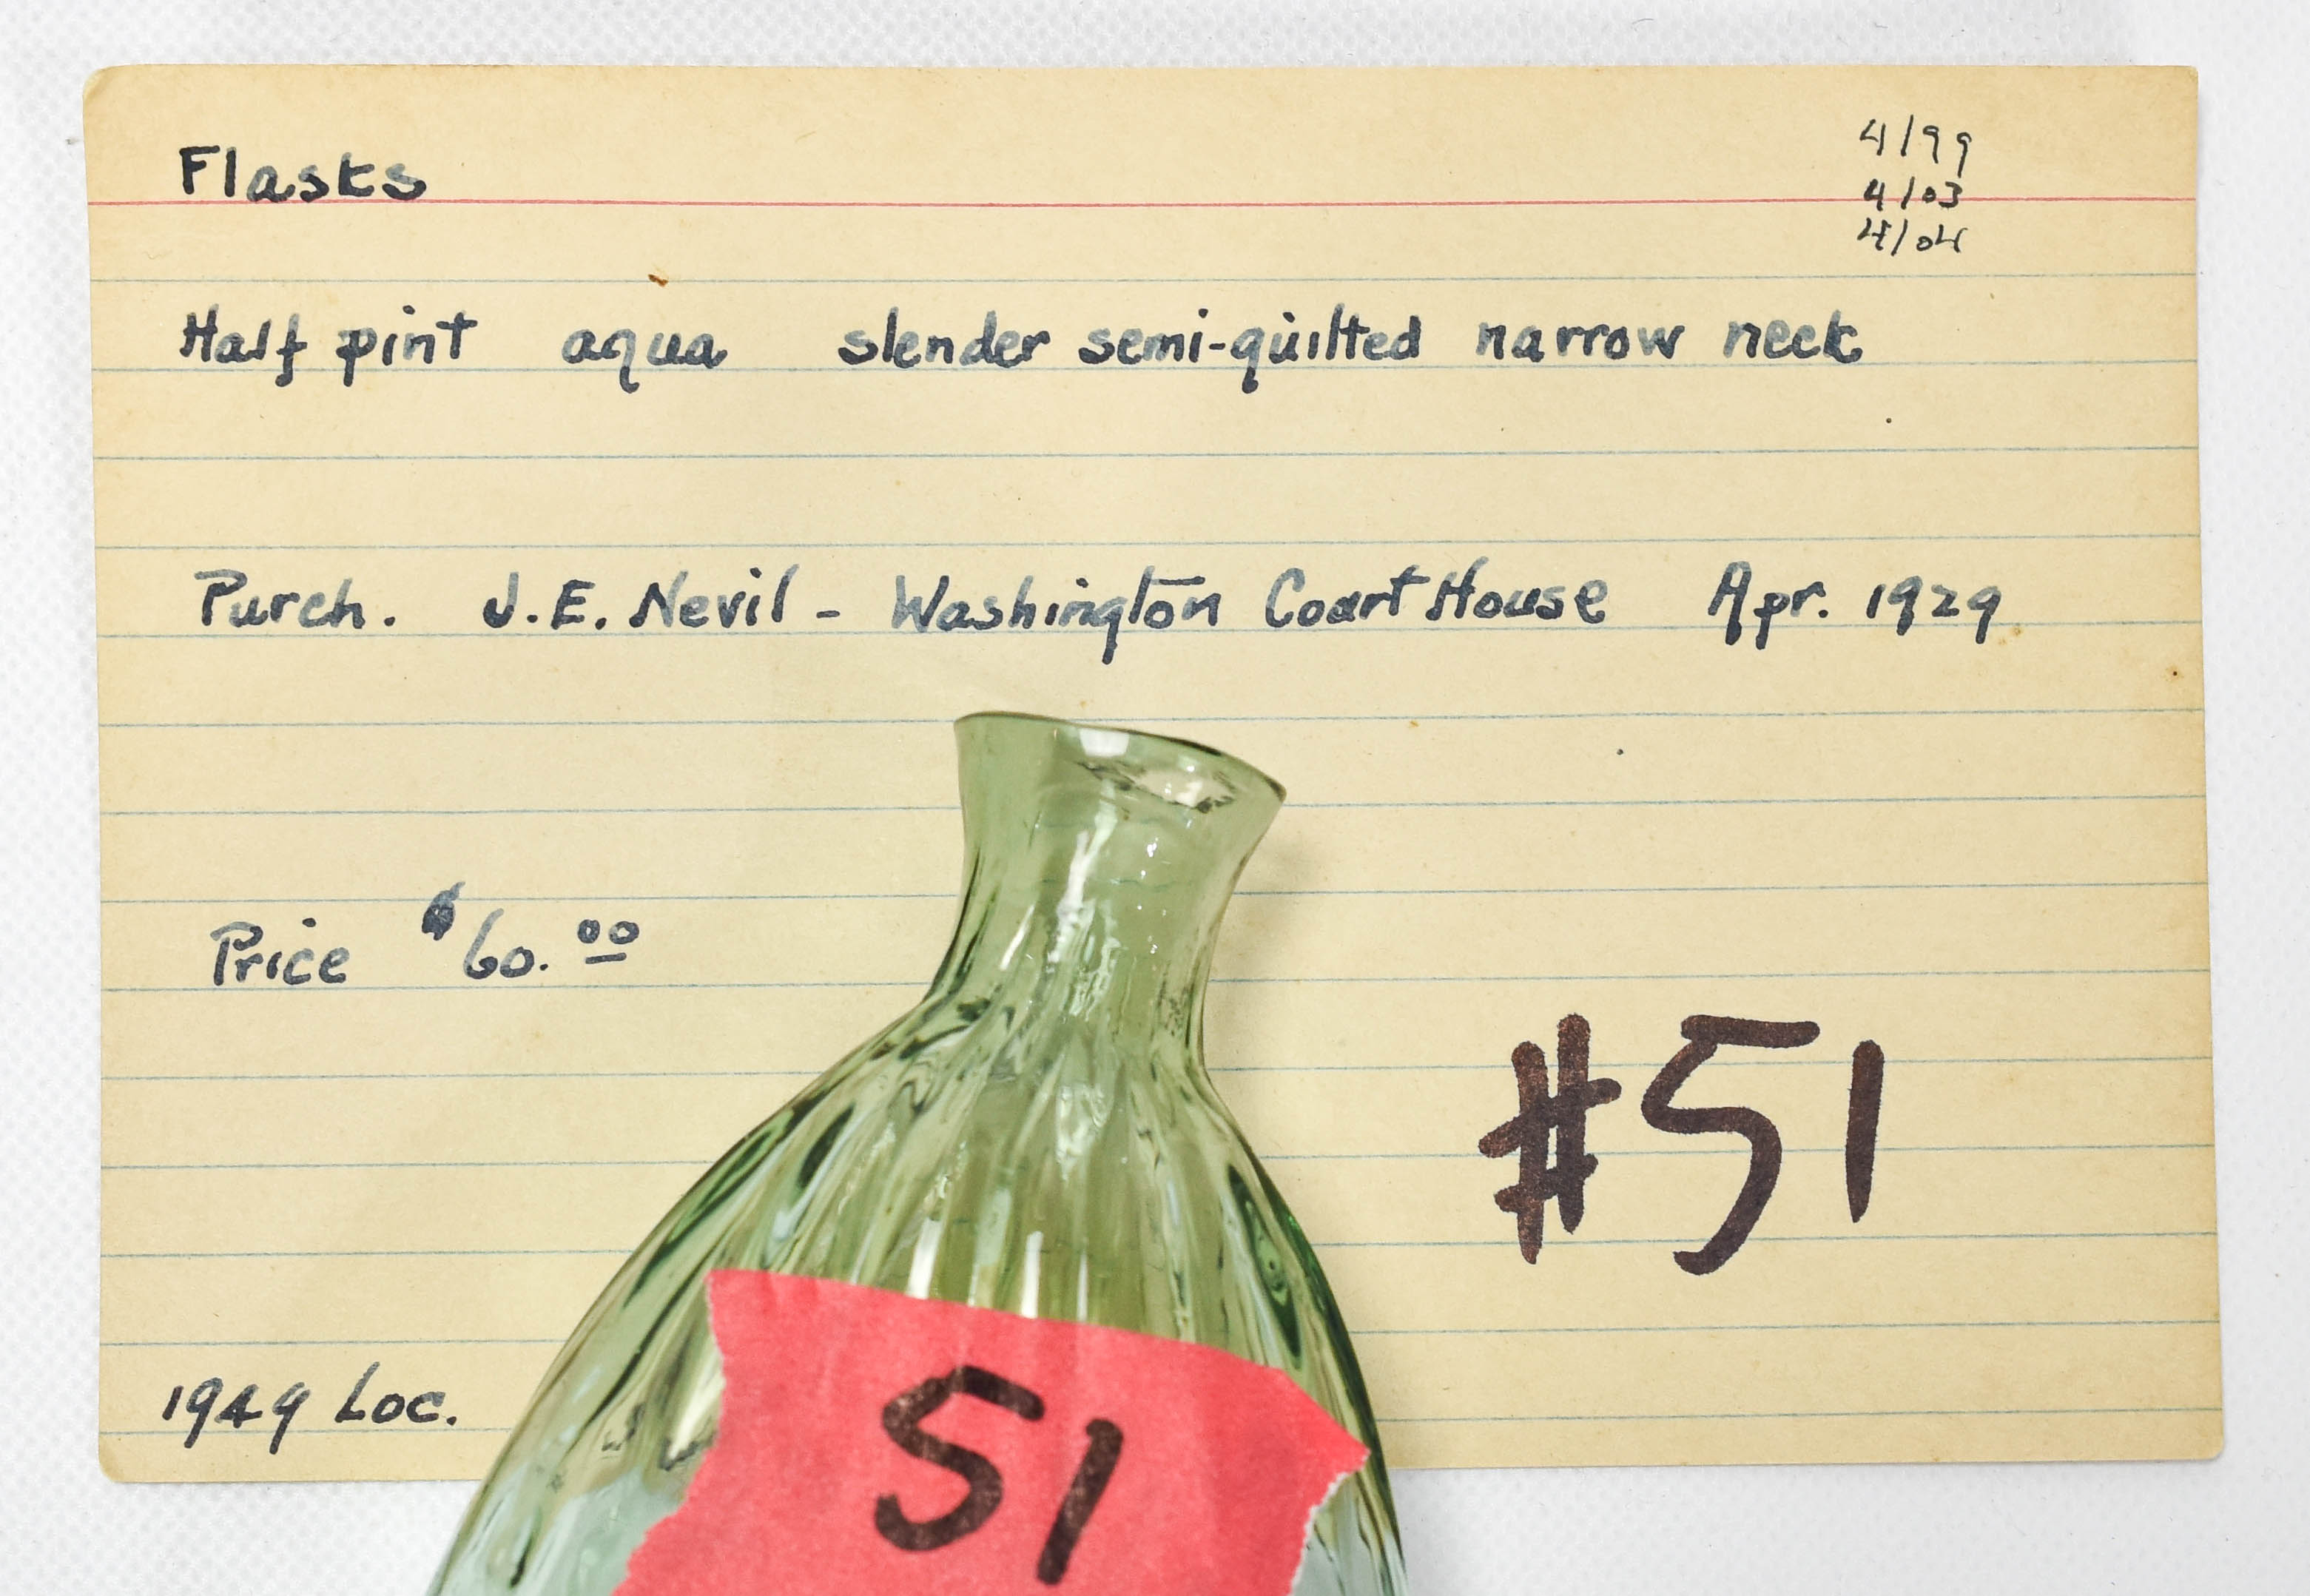 Flasks
4/99
4/03
4/04
Half pint aqua slender semi-quilted narrow neck
Purch. J.E. Nevil - Washington Court House Apr. 1929
Price $60.00
#51
1949 Loc.
51